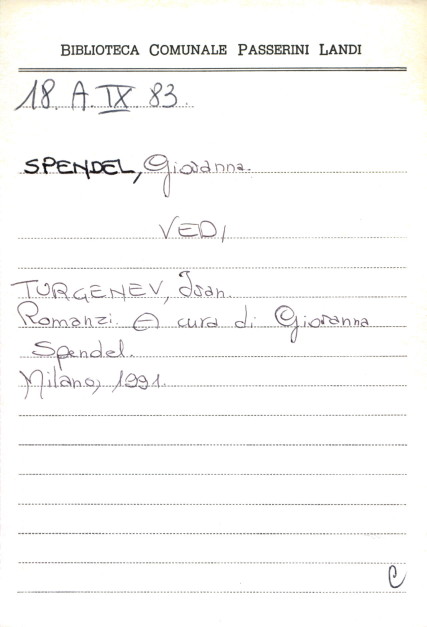 BIBLIOTECA COMUNALE PASSERINI LANDI
18. A. IX 83.
SPENDEL, Giovanna.
VEDI
TURGENEV, Ivan.
Romanzi. A cura di Giovanna
Spendel.
Milano, 1991.
C